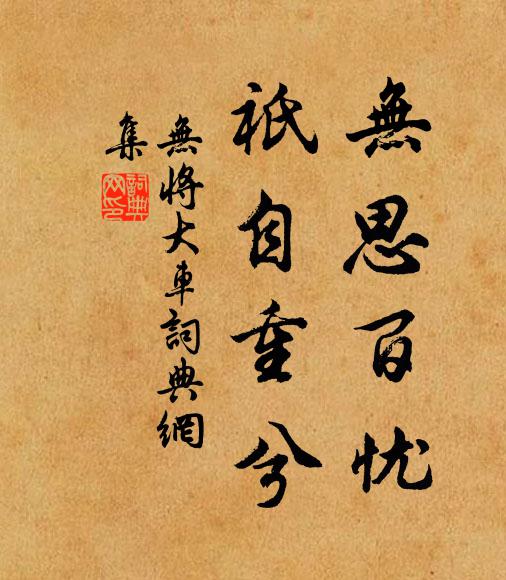 無思百忧
祇自重兮
無將大車詞典網
集
詞典
网印